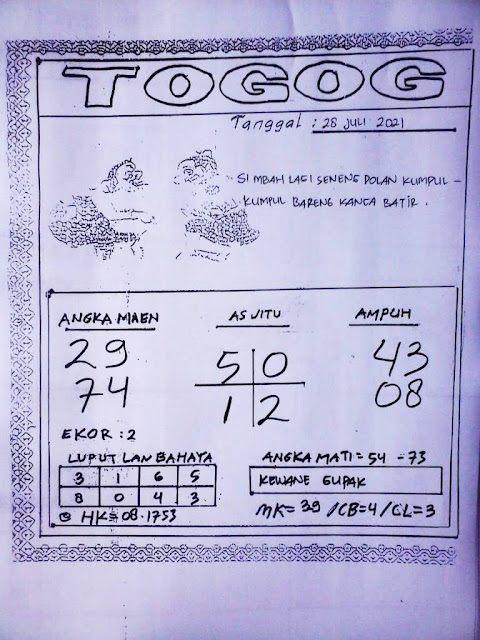 TOGOG
Tanggal : 28 JULI 2021
SI MBAH LAGI SENENG DOLAN KUMPUL -
KUMPUL BARENG KANCA BATIR .
ANGKA MAEN
29
74
EKOR : 2
AS JITU
5 0
1 2
AMPUH
43
08
LUPUT LAN BAHAYA
3 1 6 5
8 0 4 3
HK = 08.1753
ANGKA MATI = 54 - 73
KEWANE GUPAK
MK = 39 /CB=4 /CL=3